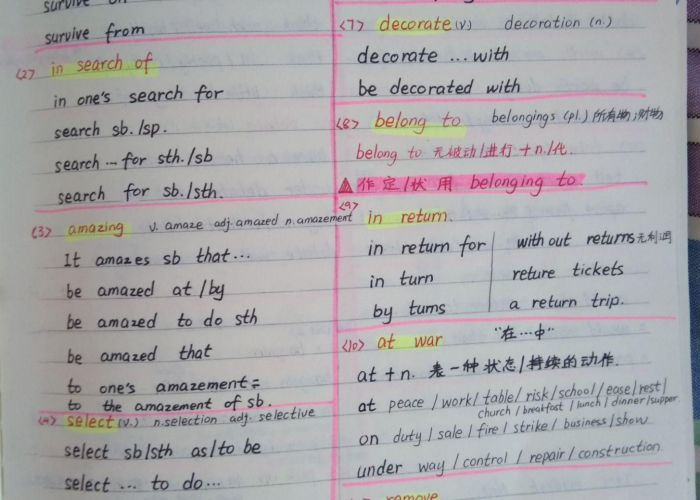 survive
survive from
(2) in search of
in one's search for
search sb./sp.
search … for sth./sb
search for sb./sth.
(3) amazing v. amaze adj. amazed n. amazement
It amazes sb that…
be amazed at / by
be amazed to do sth
be amazed that
to one's amazement =
to the amazement of sb.
(4) select (v.) n. selection adj. selective
select sb/sth as/to be
select … to do…
(7) decorate (v) decoration (n.)
decorate … with
be decorated with
(8) belong to belongings (pl.) 所有物;财物
belong to 无被动/进行 + n./代.
▲作定/状 用 belonging to.
(9) in return.
in return for without returns 无利润
in turn reture tickets
by turns a return trip.
(10) at war "在…中"
at + n. 表一种状态/持续的动作.
at peace / work / table / risk / school / ease / rest /
church / breakfast / lunch / dinner / supper
on duty / sale / fire / strike / business / show
under way / control / repair / construction.
remove